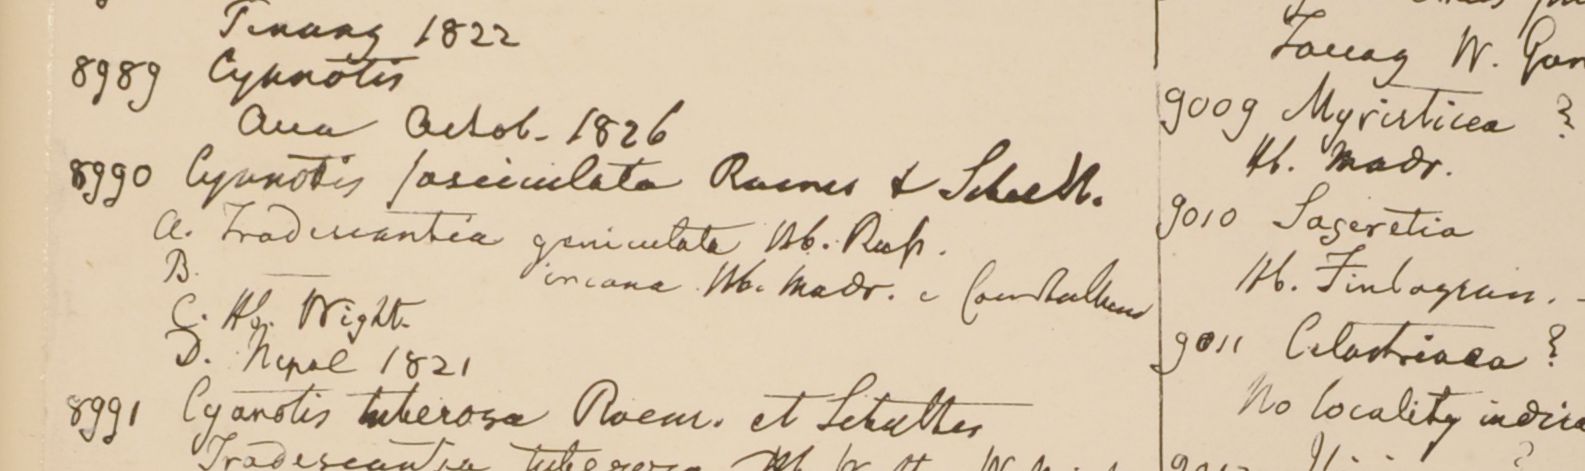 Penang 1822
8989 Cyanotis
Ava Octob. 1826
8990 Cyanotis fasciculata Roemer & Schult.
a. Tradescantia geniculata Hb. Rusp.
B. ——— incana Hb. Madr. e
C. Hb. Wight.
D. Nepal 1821
8991 Cyanotis tuberosa Roem. et Schultes
Tradescantia tuberosa Hb.
Tavoy W. Gom
9009 Myristicea ?
Hb. Madr.
9010 Sageretia
Hb. Finlayson. -
9011 Celastrinea ?
No locality indica